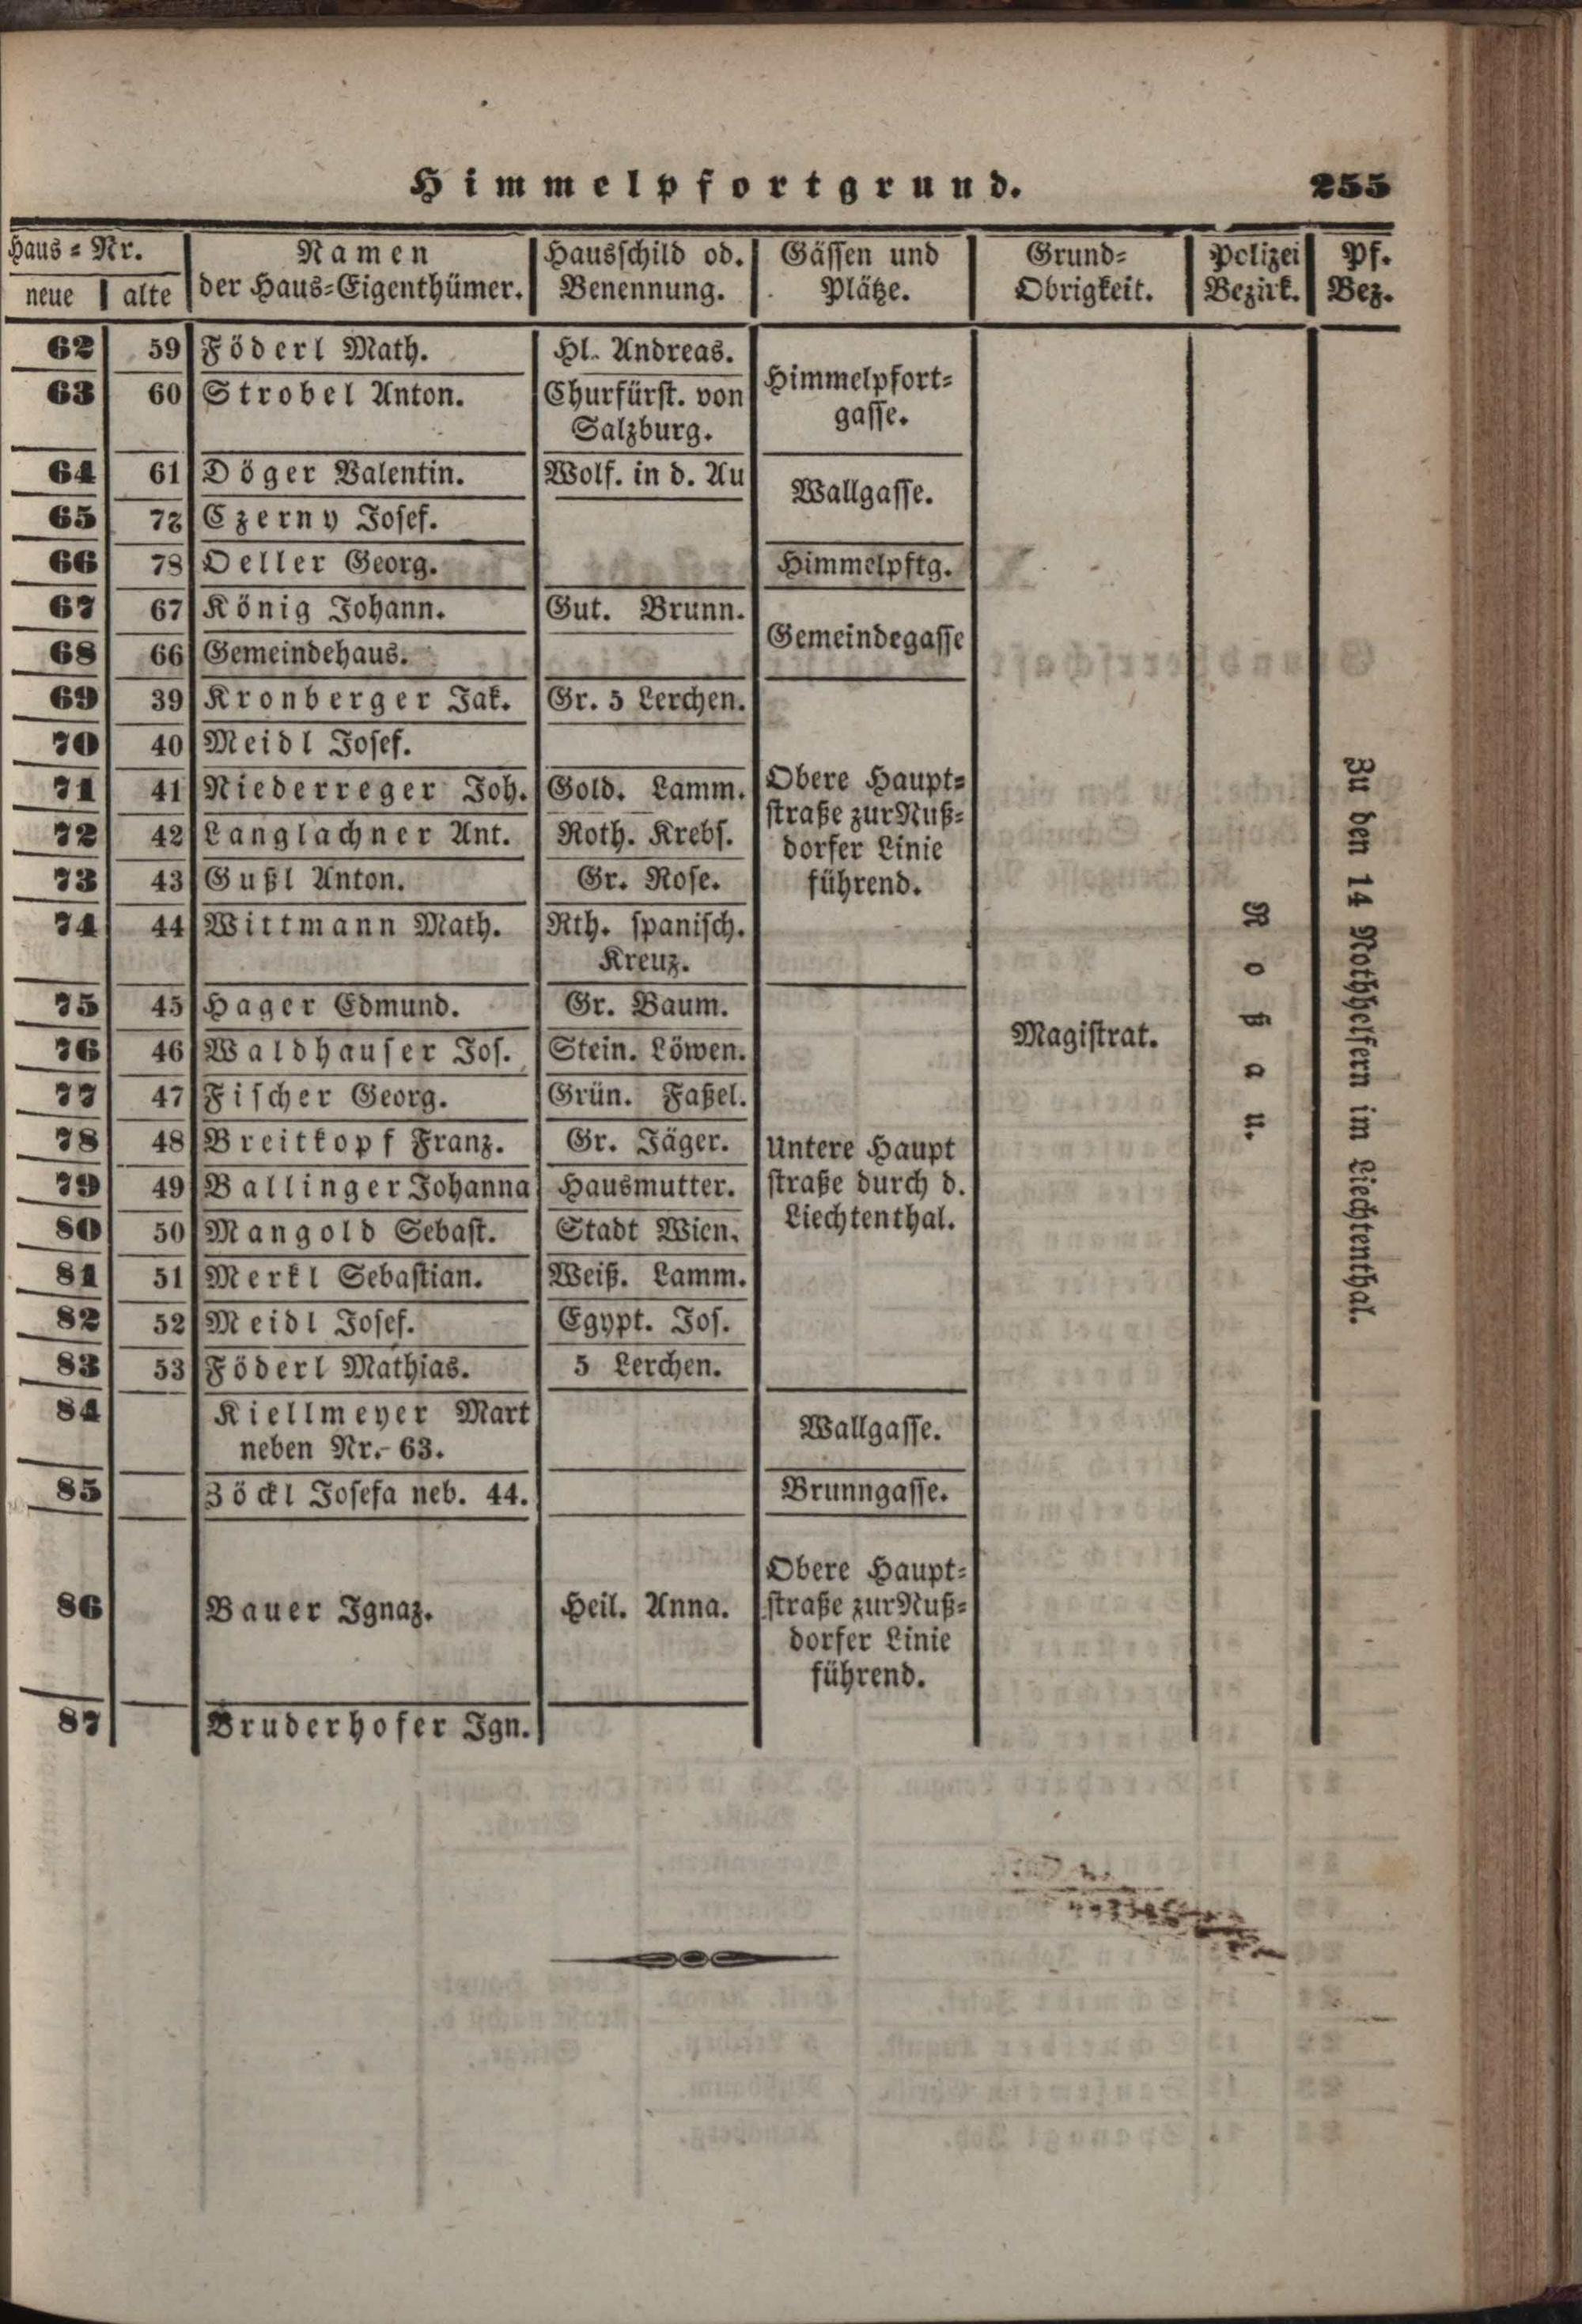 Himmelpfortgrund. 255
Haus-Nr. Namen Hausschild od. Gässen und Grund- Polizei Pf.
neue alte der Haus-Eigenthümer. Benennung. Plätze. Obrigkeit. Bezirk. Bez.
62 59 Föderl Math. Hl. Andreas.
Himmelpfort-
63 60 Strobel Anton. Churfürst. von
gasse.
Salzburg.
64 61 Döger Valentin. Wolf. in d. Au
Wallgasse.
65 72 Czerny Josef.
66 73 Oeller Georg. Himmelpftg.
67 67 König Johann. Gut. Brunn.
Gemeindegasse
68 66 Gemeindehaus.
69 39 Kronberger Jak. Gr. 5 Lerchen.
70 40 Meidl Josef.
71 41 Niederreger Joh. Gold. Lamm. Obere Haupt-
straße zur Nuß-
72 42 Langlachner Ant. Roth. Krebs.
dorfer Linie
73 43 Gußl Anton. Gr. Rose. führend.
74 44 Wittmann Math. Rth. spanisch.
Kreuz.
75 45 Hager Edmund. Gr. Baum.
76 46 Waldhauser Jos. Stein. Löwen. Magistrat.
77 47 Fischer Georg. Grün. Faßel.
78 48 Breitkopf Franz. Gr. Jäger. Untere Haupt
79 49 Ballinger Johanna Hausmutter. straße durch d.
80 50 Mangold Sebast. Stadt Wien. Liechtenthal.
81 51 Merkl Sebastian. Weiß. Lamm.
82 52 Meidl Josef. Egypt. Jos.
83 53 Föderl Mathias. 5 Lerchen.
84 Kiellmeyer Mart
Wallgasse.
neben Nr. 63.
85 Zöckl Josefa neb. 44. Brunngasse.
Obere Haupt-
86 Bauer Ignaz. Heil. Anna. straße zur Nuß-
dorfer Linie
führend.
87 Bruderhofer Ign.
Roßau.
Zu den 14 Nothhelfern im Liechtenthal.